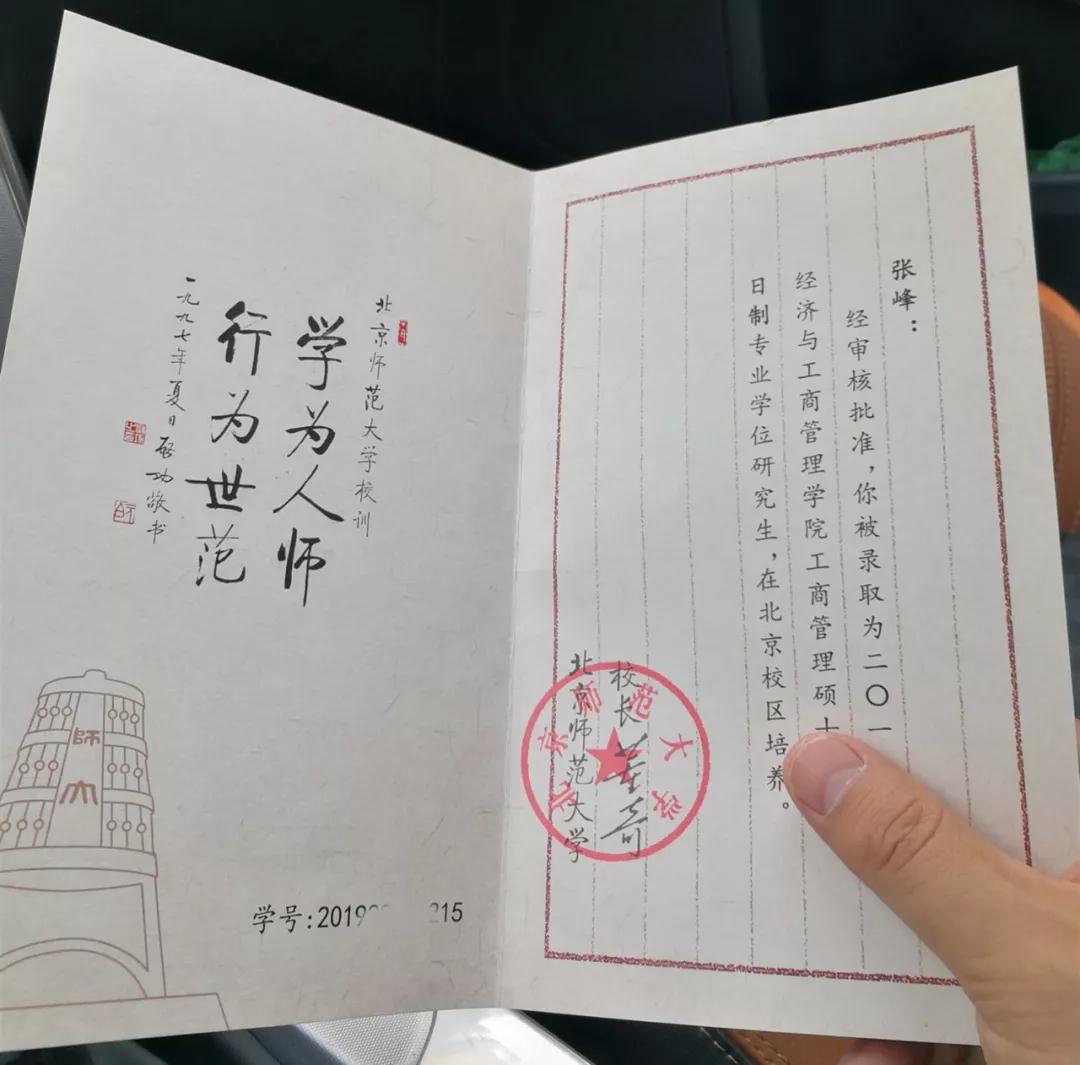 张峰：
经审核批准，你被录取为二〇一
经济与工商管理学院工商管理硕士
日制专业学位研究生，在北京校区培养。
校长 董奇
北京师范大学
北京师范大学
北京师范大学校训
学为人师
行为世范
一九九七年夏日启功敬书
師大
学号:2019 215